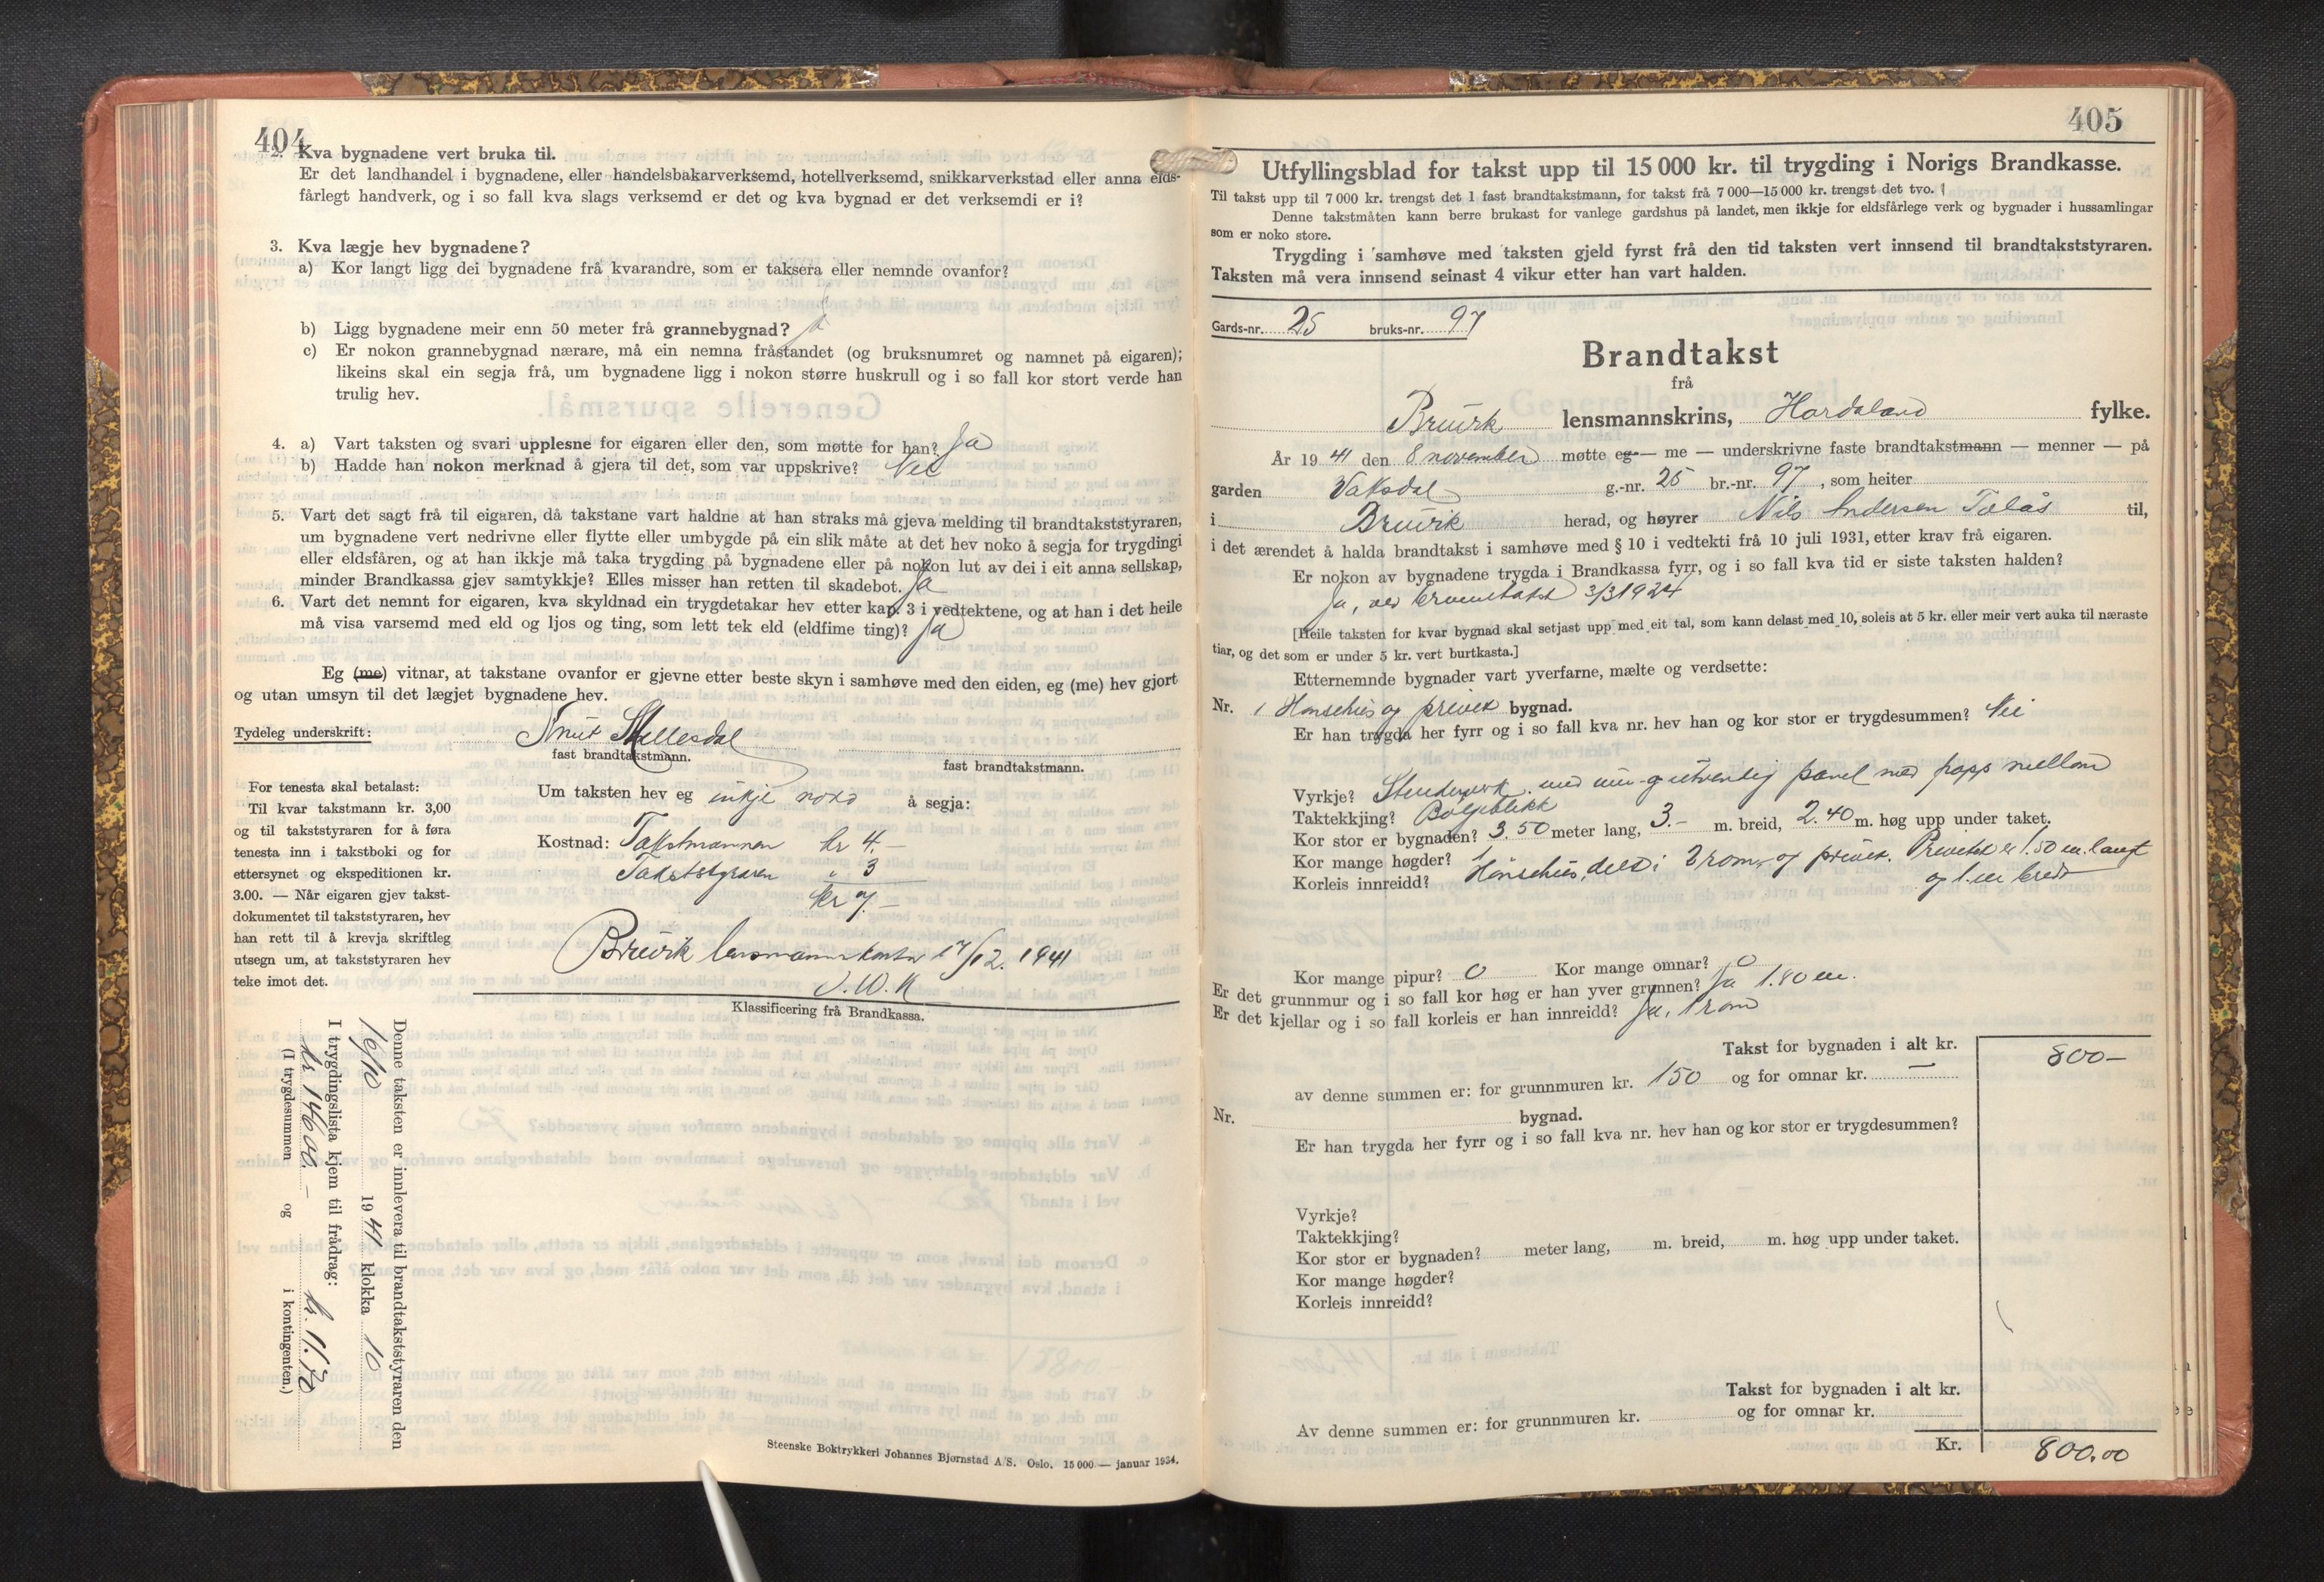 404
2. Kva bygnadene vert bruka til.
Er det landhandel i bygnadene, eller handelsbakarverksemd, hotellverksemd, snikkarverkstad eller anna elds-
fårlegt handverk, og i so fall kva slags verksemd er det og kva bygnad er det verksemdi er i?
3. Kva lægje hev bygnadene?
a) Kor langt ligg dei bygnadene frå kvarandre, som er taksera eller nemnde ovanfor?
b) Ligg bygnadene meir enn 50 meter frå grannebygnad?
c) Er nokon grannebygnad nærare, må ein nemna fråstandet (og bruksnumret og namnet på eigaren);
likeins skal ein segja frå, um bygnadene ligg i nokon større huskrull og i so fall kor stort verde han
trulig hev.
4. a) Vart taksten og svari upplesne for eigaren eller den, som møtte for han? Ja
b) Hadde han nokon merknad å gjera til det, som var uppskrive? Nei
5. Vart det sagt frå til eigaren, då takstane vart haldne at han straks må gjeva melding til brandtakststyraren,
um bygnadene vert nedrivne eller flytte eller umbygde på ein slik måte at det hev noko å segja for trygdingi
eller eldsfåren, og at han ikkje må taka trygding på bygnadene eller på nokon lut av dei i eit anna sellskap,
minder Brandkassa gjev samtykkje? Elles misser han retten til skadebot. Ja
6. Vart det nemnt for eigaren, kva skyldnad ein trygdetakar hev etter kap. 3 i vedtektene, og at han i det heile
må visa varsemd med eld og ljos og ting, som lett tek eld (eldfime ting)? Ja
Eg (me) vitnar, at takstane ovanfor er gjevne etter beste skyn i samhøve med den eiden, eg (me) hev gjort
og utan umsyn til det lægjet bygnadene hev.
Tydeleg underskrift: Knut Skellesdal
fast brandtakstmann. fast brandtakstmann.
For tenesta skal betalast:
Til kvar takstmann kr. 3,00
og til takststyraren for å føra
tenesta inn i takstboki og for
ettersynet og ekspeditionen kr.
3.00. — Når eigaren gjev takst-
dokumentet til takststyraren, hev
han rett til å krevja skriftleg
utsegn um, at takststyraren hev
teke imot det.
Um taksten hev eg inkje noko å segja:
Kostnad: Takstmannen kr 4.-
Takststyraren " 3
kr 7.-
Bruvik lensmannskontor 17/12. 1941
Klassificering frå Brandkassa.
Denne taksten er innlevera til brandtakststyraren den
16/10 1941 klokka 10
I trygdingslista kjem til frådrag:
kr. 14600.- kr. 11.70
(I trygdesummen og i kontingenten.)
Steenske Boktrykkeri Johannes Bjørnstad A/S. Oslo. 15 000 — januar 1934.
405
Utfyllingsblad for takst upp til 15 000 kr. til trygding i Norigs Brandkasse.
Til takst upp til 7 000 kr. trengst det 1 fast brandtakstmann, for takst frå 7 000—15 000 kr. trengst det tvo.
Denne takstmåten kann berre brukast for vanlege gardshus på landet, men ikkje for eldsfårlege verk og bygnader i hussamlingar
som er noko store.
Trygding i samhøve med taksten gjeld fyrst frå den tid taksten vert innsend til brandtakststyraren.
Taksten må vera innsend seinast 4 vikur etter han vart halden.
Gards-nr. 25 bruks-nr. 97
Brandtakst
frå
Bruvik lensmannskrins, Hordaland fylke.
År 1941 den 8 november møtte eg — me — underskrivne faste brandtakstmann — menner — på
garden Vaksdal g.-nr. 25 br.-nr. 97, som heiter
i Bruvik herad, og høyrer Nils Andersen Tolås til,
i det ærendet å halda brandtakst i samhøve med § 10 i vedtekti frå 10 juli 1931, etter krav frå eigaren.
Er nokon av bygnadene trygda i Brandkassa fyrr, og i so fall kva tid er siste taksten halden?
Ja, ved branntakst 3/3 1924
[Heile taksten for kvar bygnad skal setjast upp med eit tal, som kann delast med 10, soleis at 5 kr. eller meir vert auka til næraste
tiar, og det som er under 5 kr. vert burtkasta.]
Etternemnde bygnader vart yverfarne, mælte og verdsette:
Nr. 1 Hønsehus og privet bygnad.
Er han trygda her fyrr og i so fall kva nr. hev han og kor stor er trygdesummen? Nei
Vyrkje? Stenderverk med inn- og utvendig panel med papp mellom
Taktekkjing? Bølgeblikk
Kor stor er bygnaden? 3.50 meter lang, 3.- m. breid, 2.40 m. høg upp under taket.
Kor mange høgder? 1
Korleis innreidd? Hønsehus, delt i 2 rom, og privet. Privetet er 1.50 m. langt
og 1 m bredt
Kor mange pipur? 0 Kor mange omnar? 0
Er det grunnmur og i so fall kor høg er han yver grunnen? Ja 1.80 m.
Er det kjellar og i so fall korleis er han innreidd? Ja, 1 rom
Takst for bygnaden i alt kr. 800—
av denne summen er: for grunnmuren kr. 150 og for omnar kr. —
Nr. bygnad.
Er han trygda her fyrr og i so fall kva nr. hev han og kor stor er trygdesummen?
Vyrkje?
Taktekkjing?
Kor stor er bygnaden? meter lang, m. breid, m. høg upp under taket.
Kor mange høgder?
Korleis innreidd?
Takst for bygnaden i alt kr.
Av denne summen er: for grunnmuren kr. og for omnar kr.
Kr. 800.00